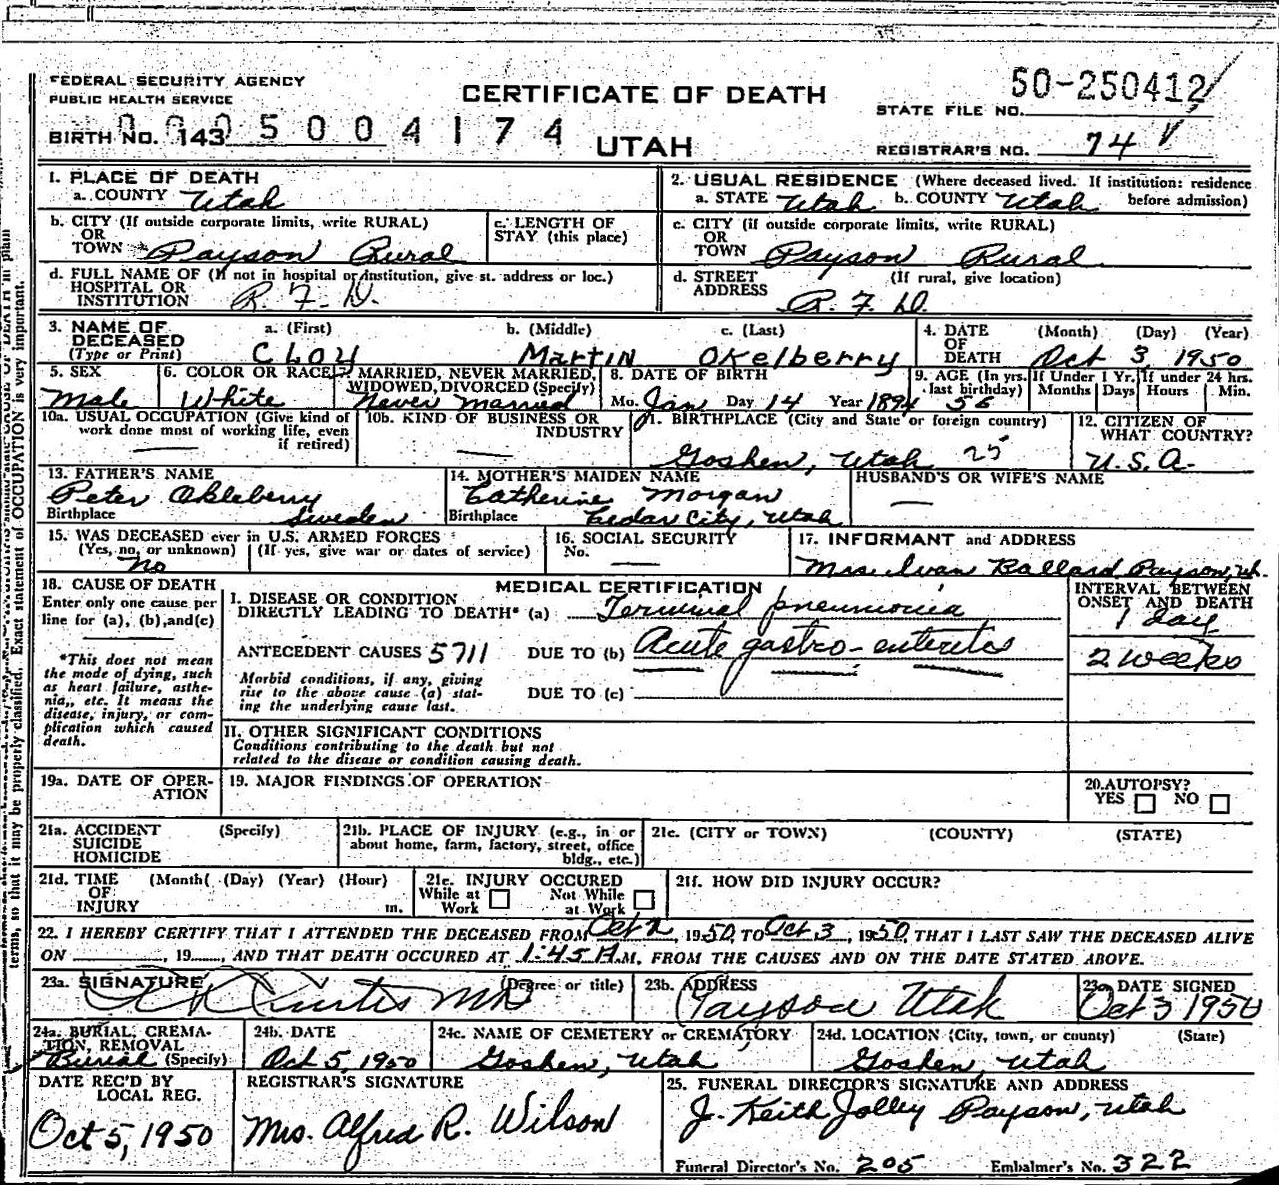 FEDERAL SECURITY AGENCY
PUBLIC HEALTH SERVICE
CERTIFICATE OF DEATH
UTAH
STATE FILE NO. 50-250412
BIRTH NO. 143 0005004174
REGISTRAR'S NO. 74
1. PLACE OF DEATH
a. COUNTY Utah
2. USUAL RESIDENCE (Where deceased lived. If institution: residence before admission)
a. STATE Utah b. COUNTY Utah
b. CITY (If outside corporate limits, write RURAL)
OR
TOWN Payson Rural
c. LENGTH OF
STAY (this place)
c. CITY (if outside corporate limits, write RURAL)
OR
TOWN Payson Rural
d. FULL NAME OF (If not in hospital or institution, give st. address or loc.)
HOSPITAL OR
INSTITUTION R. F. D.
d. STREET (If rural, give location)
ADDRESS R. F. D.
3. NAME OF a. (First) b. (Middle) c. (Last)
DECEASED
(Type or Print) CLOY MARTIN OKELBERRY
4. DATE (Month) (Day) (Year)
OF
DEATH Oct 3, 1950
5. SEX
Male
6. COLOR OR RACE
White
7. MARRIED, NEVER MARRIED,
WIDOWED, DIVORCED (Specify)
Never Married
8. DATE OF BIRTH
Mo. Jan Day 14 Year 1894
9. AGE (In yrs. last birthday) 56
If Under 1 Yr. Months Days
If under 24 hrs. Hours Min.
10a. USUAL OCCUPATION (Give kind of
work done most of working life, even
if retired)
10b. KIND OF BUSINESS OR
INDUSTRY
11. BIRTHPLACE (City and State or foreign country)
Goshen, Utah 25
12. CITIZEN OF
WHAT COUNTRY?
U.S.A.
13. FATHER'S NAME
Peter Okleberry
Birthplace Sweden
14. MOTHER'S MAIDEN NAME
Catherine Morgan
Birthplace Cedar City, Utah
HUSBAND'S OR WIFE'S NAME
15. WAS DECEASED ever in U.S. ARMED FORCES
(Yes, no, or unknown) (If yes, give war or dates of service)
No
16. SOCIAL SECURITY
No.
17. INFORMANT and ADDRESS
Mrs. Ivan Ballard, Payson, Ut.
18. CAUSE OF DEATH
Enter only one cause per
line for (a), (b), and (c)
*This does not mean
the mode of dying, such
as heart failure, asthe-
nia,, etc. It means the
disease, injury, or com-
plication which caused
death.
MEDICAL CERTIFICATION
I. DISEASE OR CONDITION
DIRECTLY LEADING TO DEATH* (a) Terminal pneumonia
INTERVAL BETWEEN
ONSET AND DEATH
1 day
ANTECEDENT CAUSES 5711 DUE TO (b) Acute gastro-enteritis
2 weeks
Morbid conditions, if any, giving
rise to the above cause (a) stat-
ing the underlying cause last.
DUE TO (c)
II. OTHER SIGNIFICANT CONDITIONS
Conditions contributing to the death but not
related to the disease or condition causing death.
19a. DATE OF OPER-
ATION
19. MAJOR FINDINGS OF OPERATION
20. AUTOPSY?
YES NO
21a. ACCIDENT (Specify)
SUICIDE
HOMICIDE
21b. PLACE OF INJURY (e.g., in or
about home, farm, factory, street, office
bldg., etc.)
21c. (CITY or TOWN) (COUNTY) (STATE)
21d. TIME (Month( (Day) (Year) (Hour)
OF
INJURY m.
21e. INJURY OCCURED
While at Work Not While at Work
21f. HOW DID INJURY OCCUR?
22. I HEREBY CERTIFY THAT I ATTENDED THE DECEASED FROM Oct 2, 1950, TO Oct 3, 1950, THAT I LAST SAW THE DECEASED ALIVE
ON , 19 , AND THAT DEATH OCCURED AT 1:45 A.M, FROM THE CAUSES AND ON THE DATE STATED ABOVE.
23a. SIGNATURE (Degree or title)
Curtis MD
23b. ADDRESS
Payson Utah
23c. DATE SIGNED
Oct 3 1950
24a. BURIAL, CREMA-
TION, REMOVAL
Burial (Specify)
24b. DATE
Oct 5, 1950
24c. NAME OF CEMETERY or CREMATORY
Goshen, Utah
24d. LOCATION (City, town, or county) (State)
Goshen, Utah
DATE REC'D BY
LOCAL REG.
Oct 5, 1950
REGISTRAR'S SIGNATURE
Mrs. Alfred R. Wilson
25. FUNERAL DIRECTOR'S SIGNATURE AND ADDRESS
J. Keith Jolley Payson, Utah
Funeral Director's No. 205 Embalmer's No. 322
terms, so that it may be properly classified. Exact statement of OCCUPATION is very important.